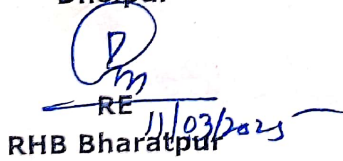 RE
11/03/2025
RHB Bharatpur